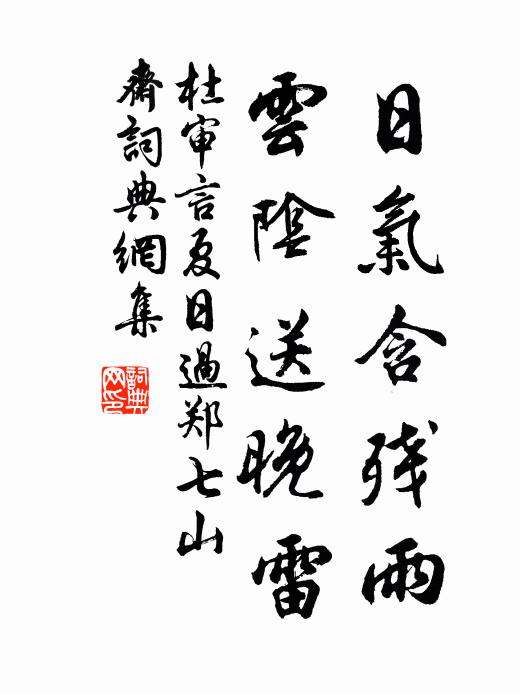 日氣含残雨
雲陰送晚雷
杜审言夏日過郑七山
齋詞典網集
詞典
网印